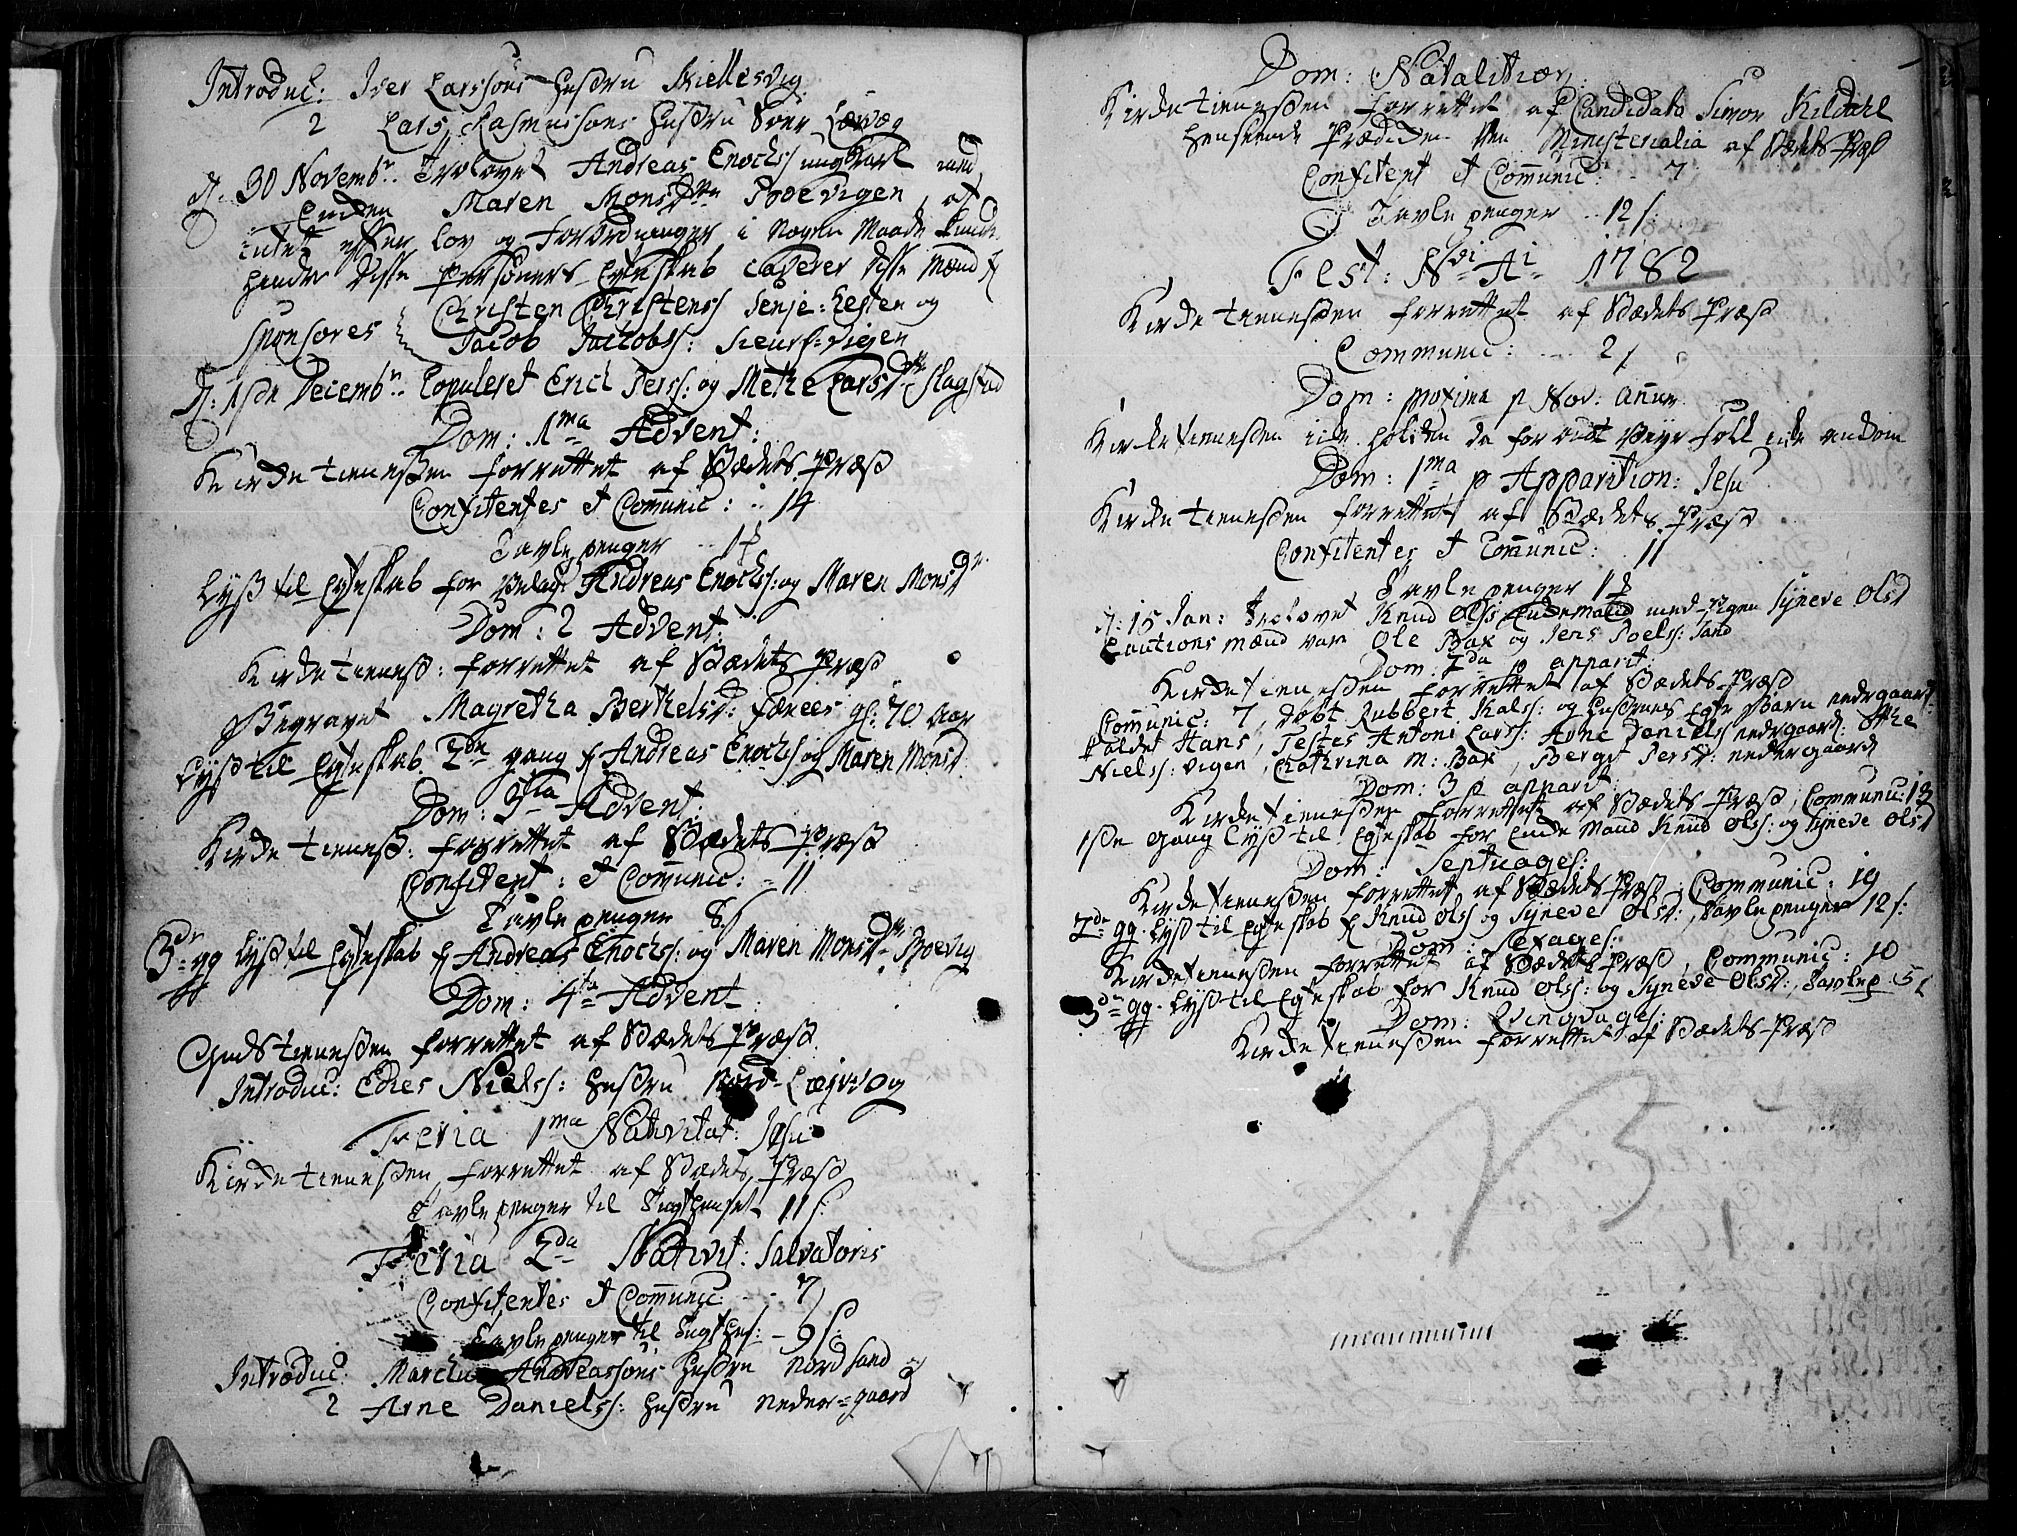 Introduc: Iver Larssons Hustru Kiellesvig
2 Lars Rasmussons Hustru Søer Lævæg
d. 30 Novembr. Trolovet Andreas Enochs: ungKarl med
Enken Maren Monsdtr Poevigen, at
intet efter Lov og Forordninger i nogen Maade kunde
hindre disse Personers Egteskab caverer disse Mænd
Sponsores Christen Christenss Senje: Lesten og
Jacob Jacobss:
d: 1ste Decembr: Copuleret Erich Perss: og Methe Larsdtr Slagstad
Dom: 1ma Advent:
Kirke tienesten forrettet af Stædets Præst
Confitentes et Com̄unic: 14
Tavle penger
Lyst til Egteskab for Andreas Enochs: og Maren Monsdr
Dom: 2 Advent:
Kirke tienest: forrettet af Stædets Præst
Begravet Magretha Berthelsd: gl: 70 Aar
Lyst til Egteskab 2den gang f Andreas Enochs og Maren Monsd
Dom: 3tia Advent:
Kirke tienest: forrettet af Stædets Præst
Confitent: et Com̄unic: 11
Tavle penger 8 s
3die gg Lyst til Egteskab f Andreas Enochs: og Maren Monsdtr Poevig
Dom: 4ta Advent
Guds tienesten forrettet af Stædets Præst
Introduc: Edies Nielss: Hustru Nord-Lægvog
Feria 1ma Nativitat: Jesu
Kirke tienesten forrettet af Stædets Præst
Tavle penger til Tugthuuset 11 s:
Feria 2da Nativit: Salvatoris
Confitentes et Com̄unic: 7
Tavle penger til Tugthus: 9 s:
Introduc: Andreassons Hustru Nordsand og
2 Arne Daniels: Hustru Neder=gaard
Dom: Natalitior:
Kirke tienesten forrettet af Candidato Simon Kildahl
henseende Prædiken Men Ministerialia af Stædets Præst
Confitent et Com̄unic: 7
Tavle penger 12 s:
Fest: Nvi Ai 1782
Kirke tienesten forrettet af Stædets Præst
Communic: 2
Dom: proxima p Nov: Annum
Kirke tienesten icke holden da for ondt Veyr folk icke ankom
Dom: 1ma p Apparition: Jesu
Kirke tienesten forrettet af Stædets Præst
Confitentes et Com̄unic: 11
Tavle penger
d: 15 Jan: trolovet Knud Ols: Enkemand med Pigen Syneve Olsd
Cautions mænd var Ole Bax og Jens Poels: Sand
Dom: 2da p apparit:
Kirke tienesten forrettet af Stædets Præst
Com̄unic: 7, døbt Rubbert Kals: og Hustrues egte Barn nedrgaard
kaldet Hans, Testes Antoni Larss: Arne Daniels nedrgaard: Othe
Niels: vigen, Cathrina M: Bax, Bergit Persd: nedergaard
Dom: 3 p apparit:
Kirke tienesten forrettet af Stædets Præst, Communic: 13
1ste Gang Lyst til Egteskab for Enke Mand Knud Ols: og Syneve Olsd
Dom: Septuages:
Kirke tienesten forrettet af Stædets Præst, Communic: 19
2de gg. Lyst til Egteskab f Knud Ols og Syneve Olsd:, Tavle penger 12 s:
Dom: Sexages:
Kirke tienesten forrettet af Stædets Præst, Communic: 10
3de gg. Lyst til Egteskab for Knud Ols: og Syneve Olsd:, Tavle p 5 s
Dom: Qvinqvages:
Kirke tienesten forrettet af Stædets Præst
NB